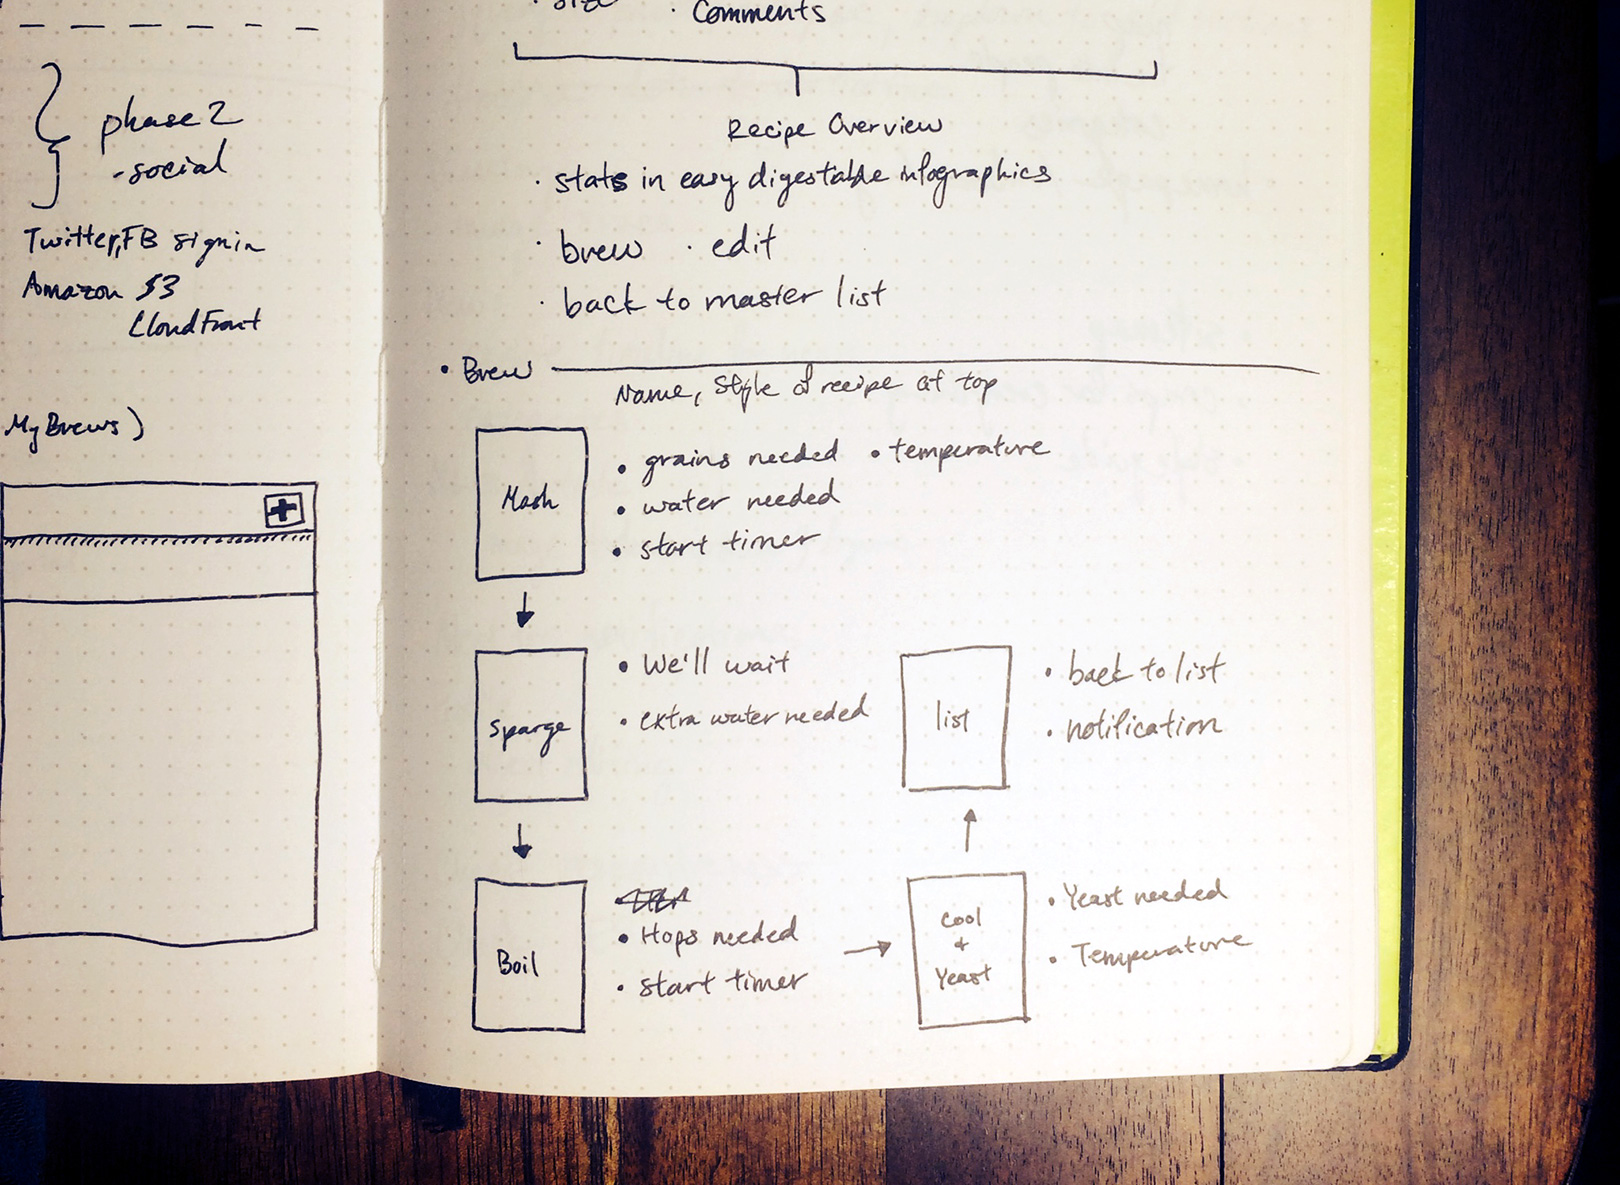 phase 2
- social
Twitter, FB signin
Amazon S3
CloudFront
My Brews)
· size · Comments
Recipe Overview
· stats in easy digestable infographics
· brew · edit
· back to master list
• Brew
Name, Style of recipe at top
Mash
• grains needed • temperature
• water needed
• start timer
Sparge
• We'll wait
• extra water needed
Boil
• Hops needed
• start timer
Cool
+
Yeast
• Yeast needed
• Temperature
list
• back to list
• notification